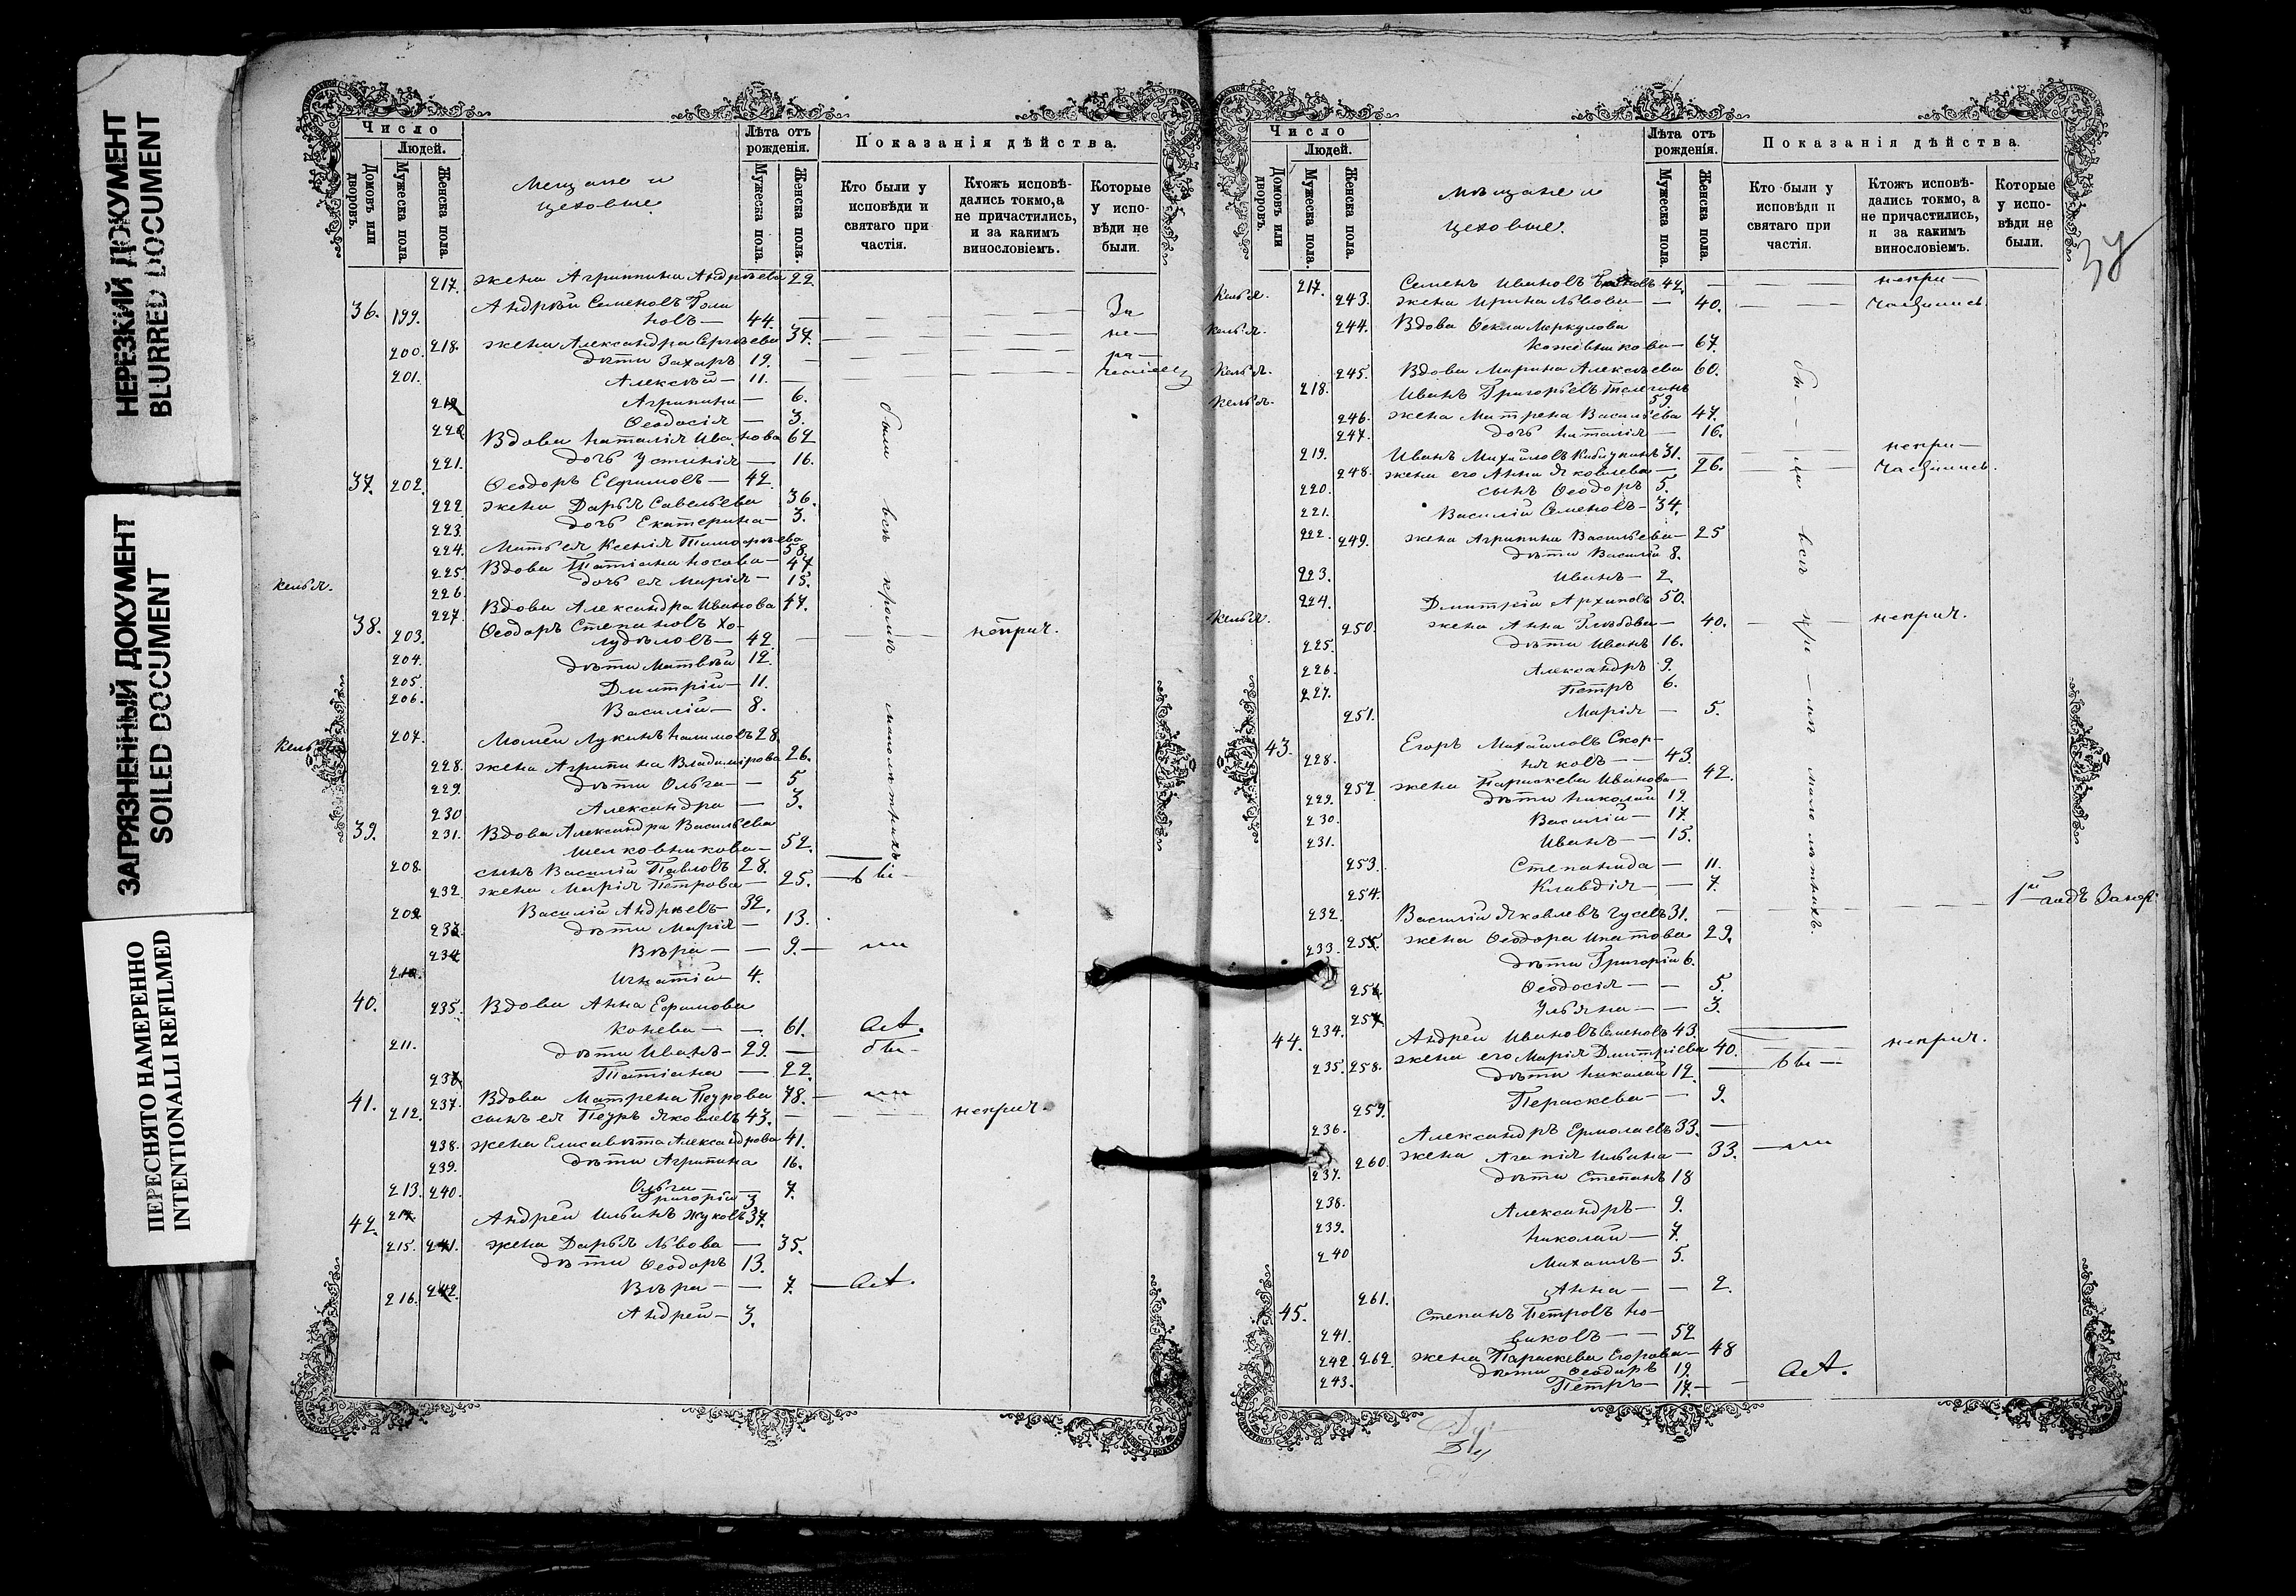 НЕРЕЗКИЙ ДОКУМЕНТ
BLURRED DOCUMENT
ЗАГРЯЗНЕННЫЙ ДОКУМЕНТ
SOILED DOCUMENT
ПЕРЕСНЯТО НАМЕРЕННО
INTENTIONALLI REFILMED
Число
Людей.
Домовъ или дворовъ.
Мужеска пола.
Женска пола.
Мещане и
цеховые.
Лѣта отъ рожденія.
Мужеска пола.
Женска пола.
Показанія дѣйства.
Кто были у исповѣди и святаго при частія.
Ктожъ исповѣ- дались токмо, а не причастились, и за какимъ винословіемъ.
Которые у испо- вѣди не были.
217. жена Агриппина Андреева 22.
36. 199. Андрей Семеновъ
новъ — 44. — За
218. жена Александра Сергѣева 37. — не —
200. дѣти Захаръ 19. — ра —
201. Алексѣй — 11.
219 Агрипина — 6.
220 Ѳеодосія — 3.
Вдова Наталія Иванова 62
221. дочь Устинія — 16.
37. 202. Ѳеодоръ Ефимовъ — 42.
222 жена Дарья Савельева 36.
223. дочь Екатерина — 3.
224. Мать ея Ксенія Тимофѣева 58.
225. Вдова Татіана Носова — 47
226. дочь ея Марія — 15.
келья.
227. Вдова Александра Иванова 47.
38. 203. Ѳеодоръ Степановъ Хо-
лудѣловъ — 42. — неприч.
204. дѣти Матвѣй 12.
205. Дмитрій — 11.
206. Василій — 8.
келья
207. Лукинъ 28.
228. жена Агрипина Владимірова 26.
229. дѣти Ольга — 5
230 Александра — 3.
39. 231. Вдова Александра Васильева
Шелковникова — 52.
208. сынъ Василій Павловъ 28.
232. жена Марія Петрова — 25. — бы —
209 Василій Андреевъ 32.
233. дѣти Марія — 13.
234 Вѣра — 9. — ли
210. Игнатій 4.
40. 235. Вдова Анна Ефимова
Конева — 61.
211. дѣти Иванъ — 29. — бы —
236 Татіана — 22.
41. 237. Вдова Матрена Петрова 78. — ли
212. сынъ ея Петръ Яковлевъ 43. — неприч.
238. жена Елисавета Александрова 41.
239. дѣти Агрипина 16.
213. 240. Ольга — 7.
Григорій 3
42. 214 Андрей Ильинъ Жуковъ 37.
215. 241. жена Дарья Львова — 35.
дѣти Ѳеодоръ 13.
216. 242. Вѣра — 7.
Андрей — 3.
были всѣ кромѣ малолѣтнихъ
Число
Людей.
Домовъ или дворовъ.
Мужеска пола.
Женска пола.
Мѣщане и
цеховые.
Лѣта отъ рожденія.
Мужеска пола.
Женска пола.
Показанія дѣйства.
Кто были у исповѣди и святаго при частія.
Ктожъ исповѣ- дались токмо, а не причастились, и за какимъ винословіемъ.
Которые у испо- вѣди не были.
217. Семенъ Ивановъ 42. — непри —
Келья. 243. жена Ирина Львова — 40. — частились
келья. 244. Вдова Ѳекла Меркулова
Кожевникова — 67.
Келья. 245. Вдова Марина Алексѣева 60.
218. Иванъ Григорьевъ Телегинъ 59.
келья. 246. жена Матрена Васильева 47.
247. дочь Наталія — 16.
219. Иванъ Михайловъ 31. — непри —
248. жена его Анна Яковлева — 26. — частились.
220. сынъ Ѳеодоръ 5.
221. Василій Семеновъ — 34.
222. 249. жена Агрипина Васильева — 25
дѣти Василій 8.
223. Иванъ — 2.
224. Дмитрій Архиповъ 50.
Келья. 250. жена Анна Глѣбова — 40. — неприч.
225. дѣти Иванъ 16.
226. Александръ 9.
227. Петръ 6.
251. Марія — 5.
43. 228. Егоръ Михайловъ Скор-
няковъ — 43.
252 жена Параскева Иванова — 42.
229. дѣти Николай 19.
230. Василій — 17.
231. Иванъ — 15.
253. Степанида — 11.
254. Клавдія — 7.
232. Василій Яковлевъ Гусевъ 31. — 1й годъ
233. 255. жена Ѳеодора Ипатова 29.
дѣти Григорій 6.
256 Ѳеодосія — 5.
257 Ульяна — 3.
44. 234. Андрей Ивановъ Семеновъ 43.
235. 258. жена его Марія Дмитріева 40. — неприч.
дѣти Николай 12. — бы —
259. Пераскева — 9.
236. Александръ Ермолаевъ 33. —
260. жена Агапія Ильина — 33. — ли
237. дѣти Степанъ 18
238. Александръ — 9.
239. Николай — 7.
240 Михаилъ — 5.
261. Анна — 2.
45. 241. Степанъ Петровъ Но-
виковъ — 52
242. 262. жена Параскева Егорова — 48
дѣти Ѳеодоръ 19.
243. Петръ — 17. —
бы — ли всѣ кро — мѣ малолѣтнихъ.